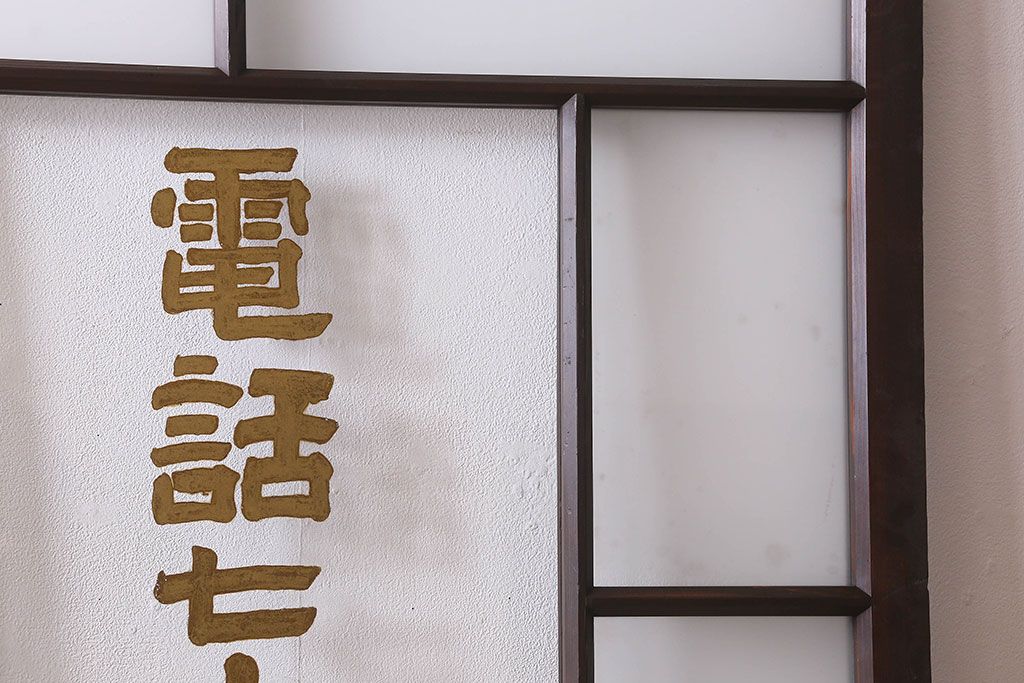 電話七